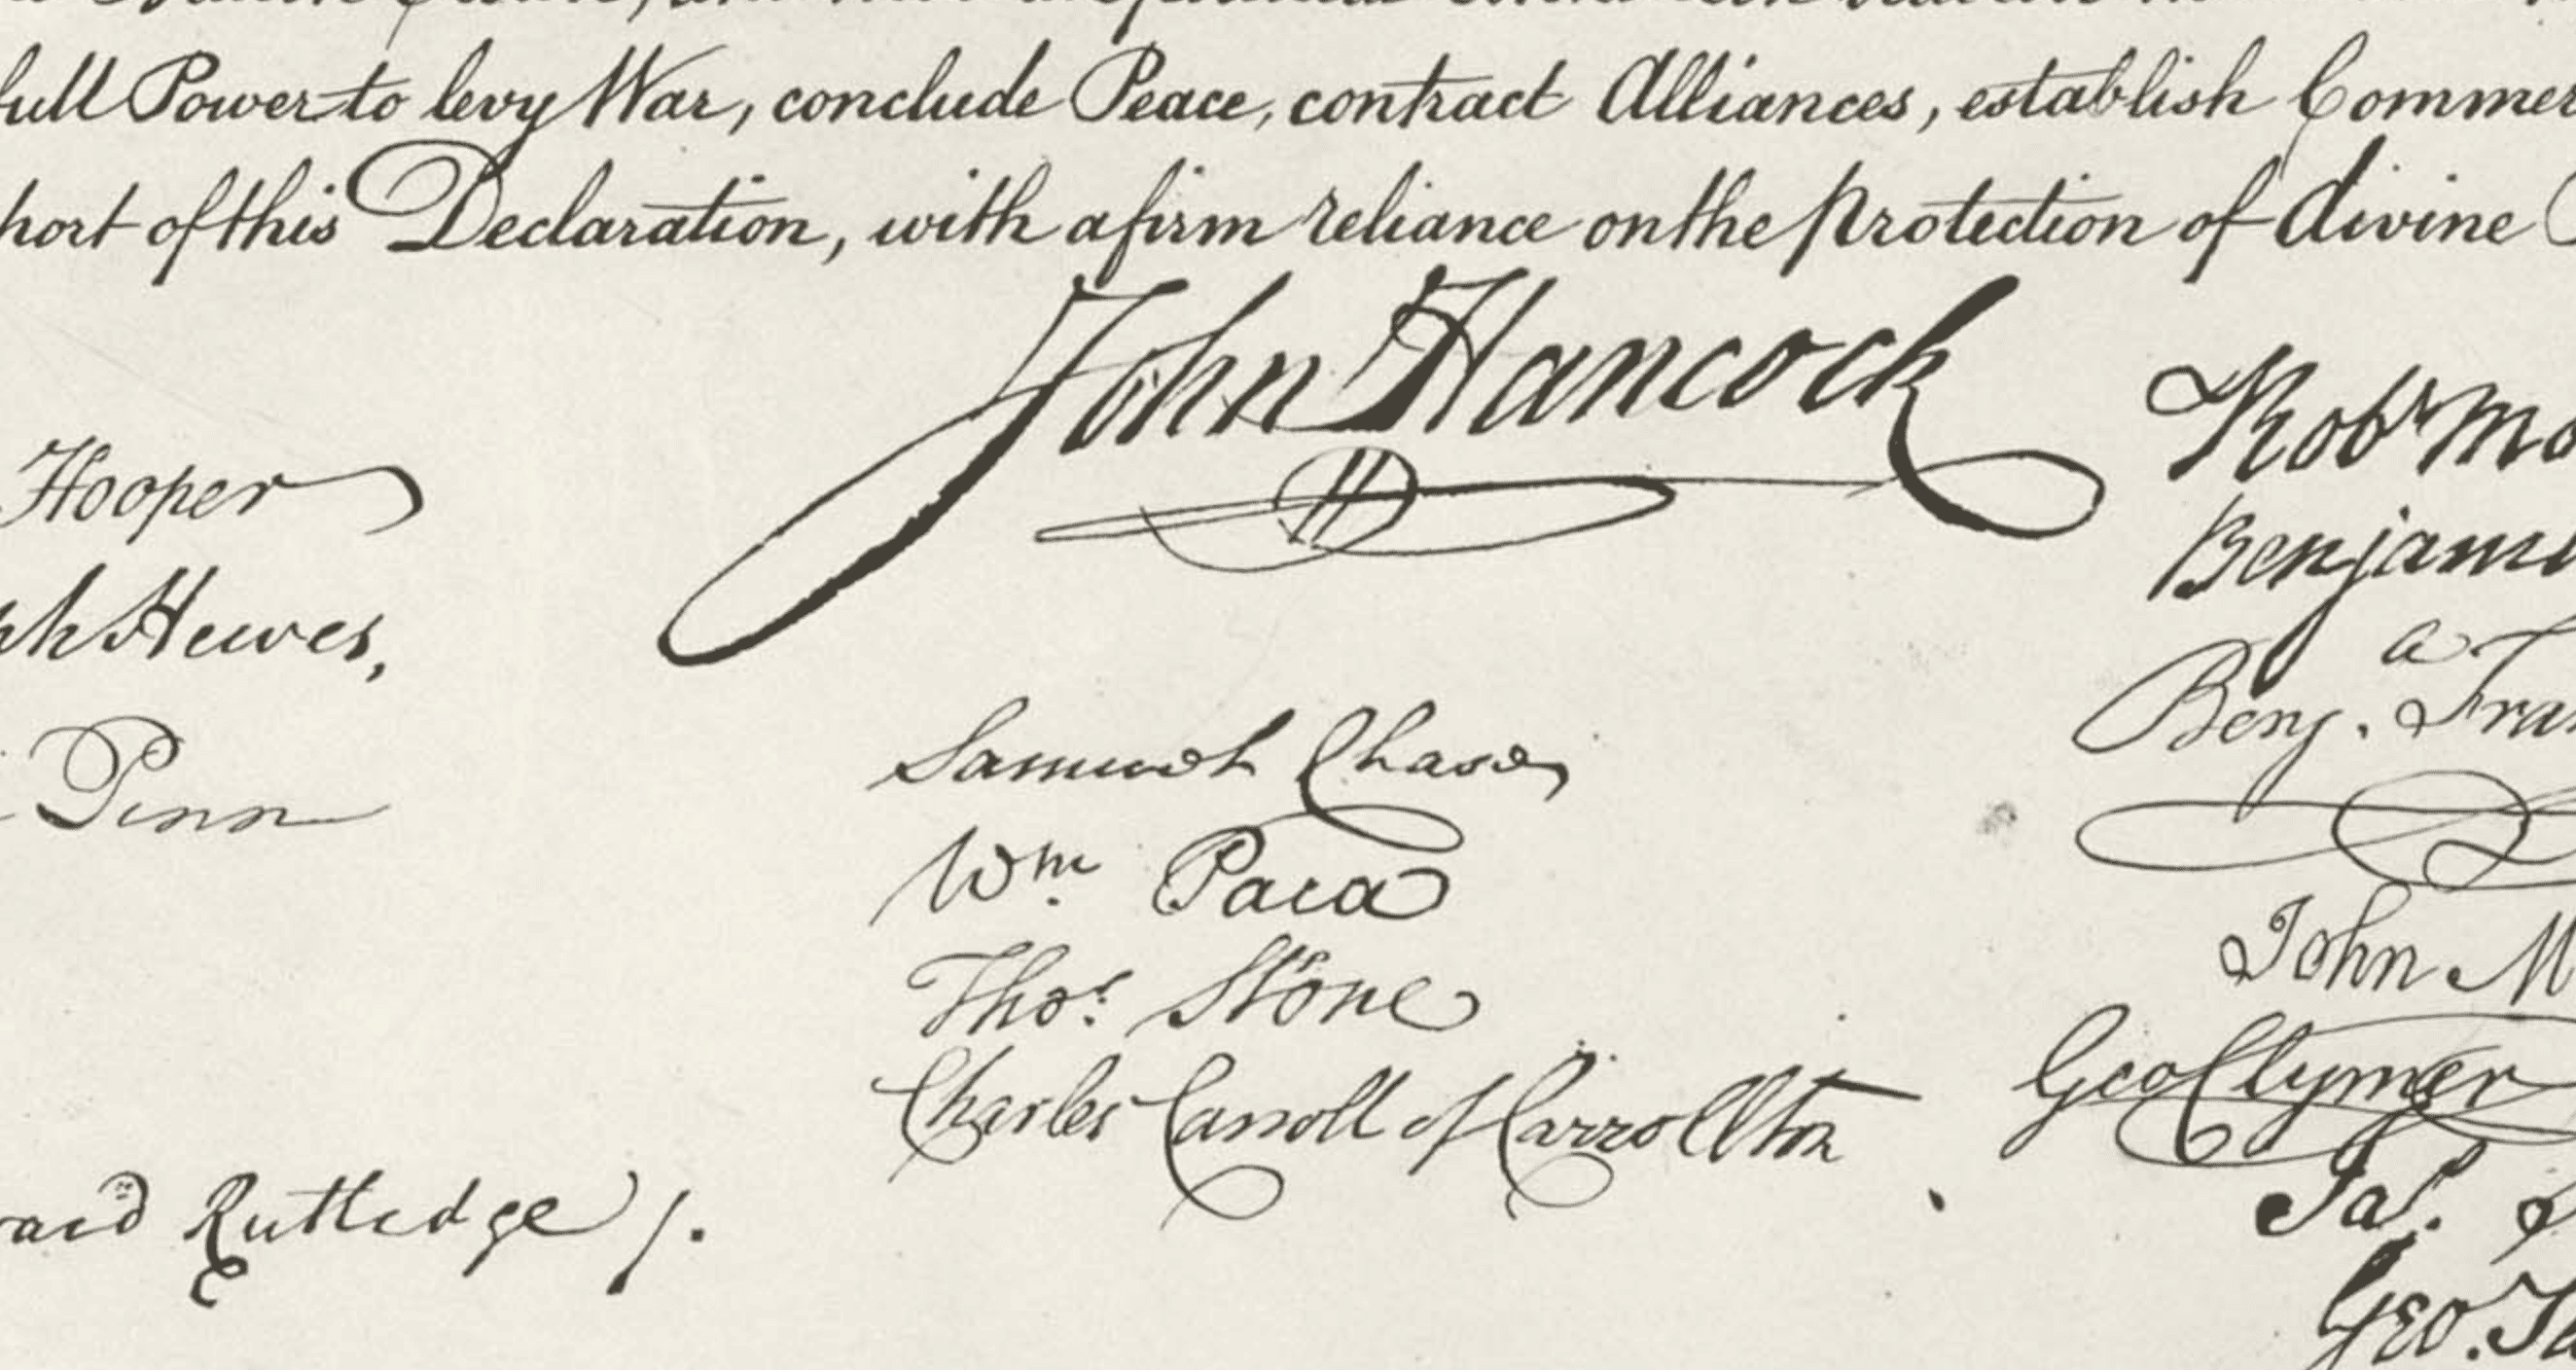 full Power to levy War, conclude Peace, contract Alliances, establish Commer
port of this Declaration, with a firm reliance on the Protection of divine
John Hancock
Hooper
ph Hewes,
Penn
Samuel Chase
Wm. Paca
Thos. Stone
Charles Carroll of Carrollton
ward Rutledge /.
Robt Mo
Benjami
Benj. Fran
John M
Geo Clymer
Jas.
Geo. T